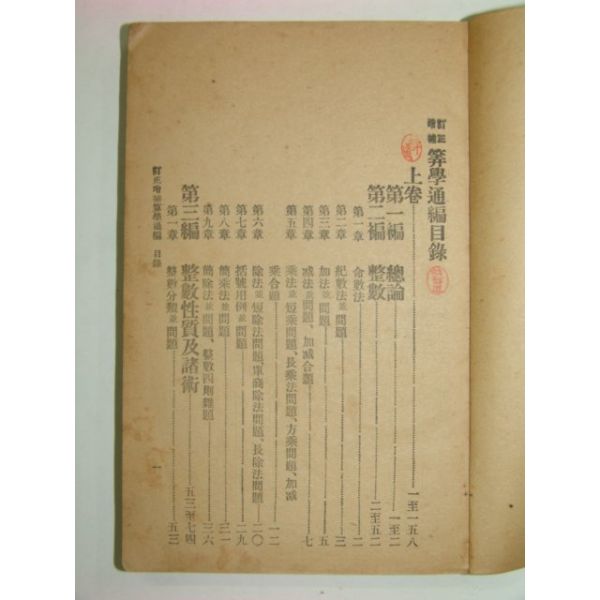 訂正增補 算學通編目錄
上卷 一至一五八
第一編 總論 一至二
第二編 整數 二至五二
第一章 命數法 二
第二章 紀數法並問題 三
第三章 加法並問題 五
第四章 減法並問題、加減合題 七
第五章 乘法並短乘問題、長乘法問題、方乘問題、加減
乘合題 一二
第六章 除法並短除法問題、單商除法問題、長除法問題 二〇
第七章 括號用例並問題 二九
第八章 簡乘法並問題 三一
第九章 簡除法並問題、整數四則雜題 三六
第三編 整數性質及諸術 五三至七四
第一章 整數分類並問題 五三
訂正增補算學通編 目錄 一